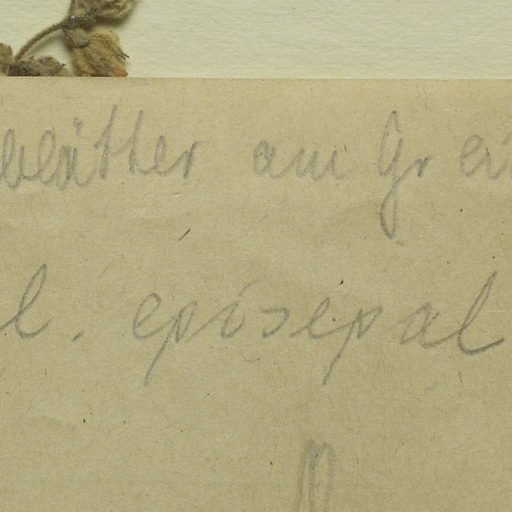 blätter am Gr
l. episepal